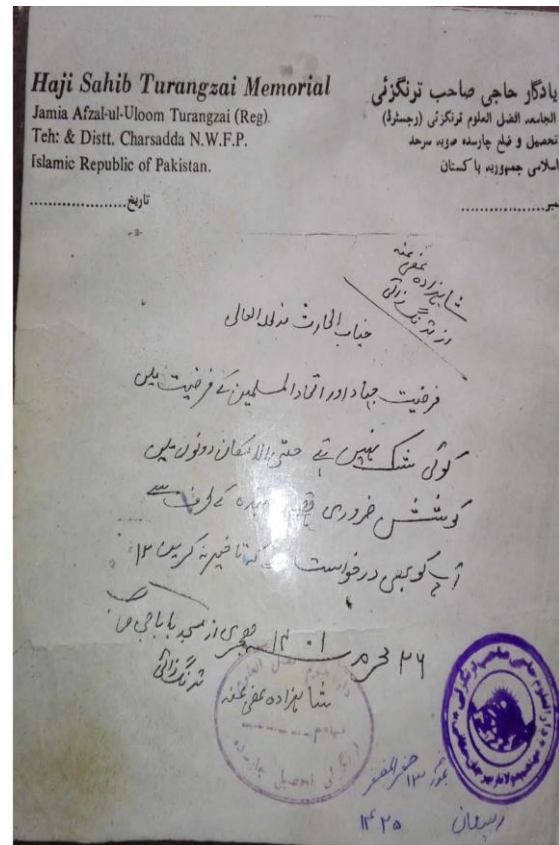 Haji Sahib Turangzai Memorial
Jamia Afzal-ul-Uloom Turangzai (Reg).
Teh: & Distt. Charsadda N.W.F.P.
Islamic Republic of Pakistan.
یادگار حاجی صاحب ترنگزئی
الجامعہ افضل العلوم ترنگزئی (رجسٹرڈ)
تحصیل و ضلع چارسدہ صوبہ سرحد
اسلامی جمہوریہ پاکستان
تاریخ....................
نمبر....................
شاہزادہ عفی عنہ
از ترنگزائی
جناب الحارث مدظلہ العالی
فرضیت جہاد اور اتحاد المسلمین کے فرضیت میں
کوئی شک نہیں ہے حتی الامکان دونوں میں
کوشش ضروری ہے بندہ کے طرف سے
آپ کو بھی درخواست ہے کہ تاخیر نہ کریں ۱۲
۲۶ محرم ۱۴۰۱ ہجری از مسجد باباجی صاحب
ترنگزائی
شاہزادہ عفی عنہ
۱۳ صفر المظفر
۱۴۲۵